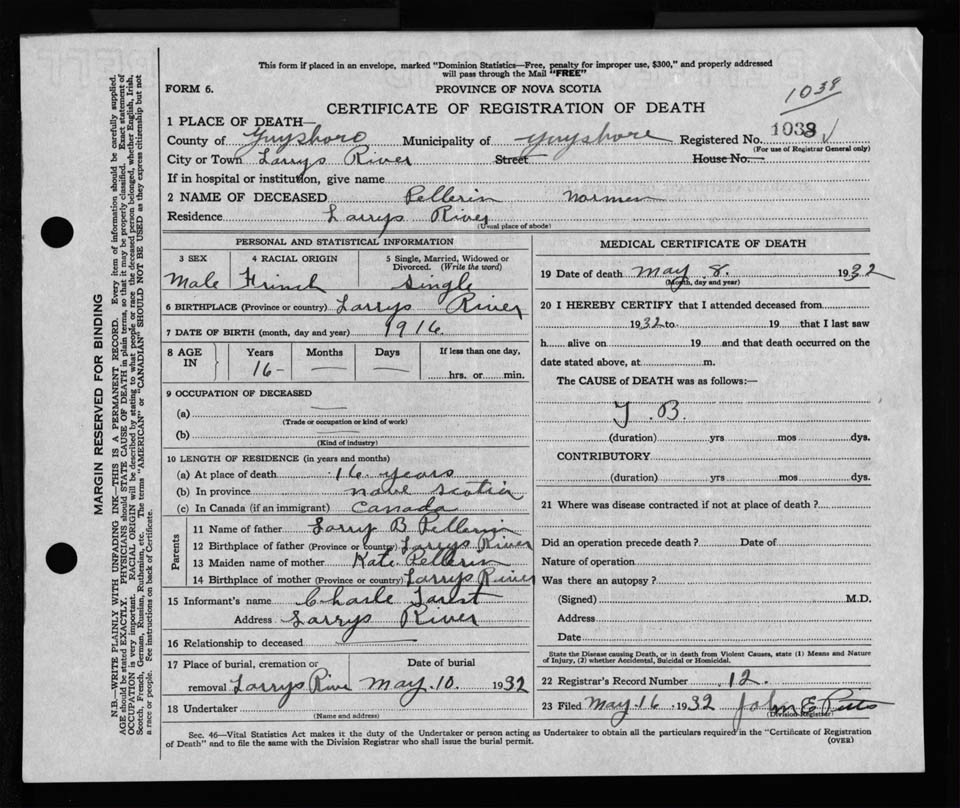 This form if placed in an envelope, marked "Dominion Statistics—Free, penalty for improper use, $300," and properly addressed
will pass through the Mail "FREE"
FORM 6.
PROVINCE OF NOVA SCOTIA
1038
CERTIFICATE OF REGISTRATION OF DEATH
1 PLACE OF DEATH—
County of Guysboro Municipality of Guysboro Registered No. 1038
(For use of Registrar General only)
City or Town Larrys River Street House No.
If in hospital or institution, give name
2 NAME OF DECEASED Pellerin Normen
Residence Larrys River
(Usual place of abode)
PERSONAL AND STATISTICAL INFORMATION
3 SEX 4 RACIAL ORIGIN 5 Single, Married, Widowed or Divorced. (Write the word)
Male Frinch Single
6 BIRTHPLACE (Province or country) Larrys River
7 DATE OF BIRTH (month, day and year) 1916
8 AGE IN Years Months Days If less than one day,
16 — — — hrs. or min.
9 OCCUPATION OF DECEASED
(a) —
(Trade or occupation or kind of work)
(b) —
(Kind of industry)
10 LENGTH OF RESIDENCE (in years and months)
(a) At place of death 16 years
(b) In province nove scotia
(c) In Canada (if an immigrant) Canada
Parents
11 Name of father Larry B Pellerin
12 Birthplace of father (Province or country) Larrys River
13 Maiden name of mother Kate Pellerin
14 Birthplace of mother (Province or country) Larrys River
15 Informant's name Charle
Address Larrys River
16 Relationship to deceased —
17 Place of burial, cremation or Date of burial
removal Larrys Rive May 10 1932
18 Undertaker
(Name and address)
MEDICAL CERTIFICATE OF DEATH
19 Date of death May 8. 1932
(Month, day and year)
20 I HEREBY CERTIFY that I attended deceased from
1932 to 19 that I last saw
h alive on 19 and that death occurred on the
date stated above, at m.
The CAUSE of DEATH was as follows:—
T.B.
(duration) yrs mos dys.
CONTRIBUTORY
(duration) yrs mos dys.
21 Where was disease contracted if not at place of death?
Did an operation precede death? Date of
Nature of operation
Was there an autopsy?
(Signed) M.D.
Address
Date
State the Disease causing Death, or in death from Violent Causes, state (1) Means and Nature
of Injury, (2) whether Accidental, Suicidal or Homicidal.
22 Registrar's Record Number 12.
23 Filed May 16 1932 John E
(Division Registrar)
Sec. 46—Vital Statistics Act makes it the duty of the Undertaker or person acting as Undertaker to obtain all the particulars required in the "Certificate of Registration
of Death" and to file the same with the Division Registrar who shall issue the burial permit.
(OVER)
MARGIN RESERVED FOR BINDING
N.B.—WRITE PLAINLY WITH UNFADING INK—THIS IS A PERMANENT RECORD. Every item of information should be carefully supplied.
AGE should be stated EXACTLY. PHYSICIANS should STATE CAUSE OF DEATH in plain terms, so that it may be properly classified. Exact statement of
OCCUPATION is very important. RACIAL ORIGIN will be described by stating to what people or race the deceased person belonged, whether English, Irish,
Scotch, French, German, Russian, Ruthenian, etc. The terms "AMERICAN" or "CANADIAN" SHOULD NOT BE USED as they express citizenship but not
a race or people. See instructions on back of Certificate.